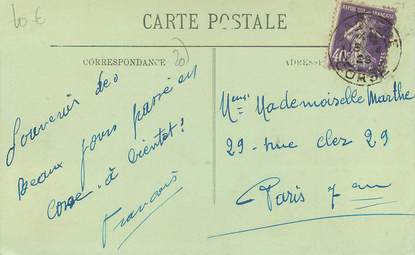 10 €
CARTE POSTALE
CORRESPONDANCE
20
ADRESSE
REPUBLIQUE FRANÇAISE
40c
CORSE
Souvenir des
Beaux jours passé en
Corse - à bientôt!
François
Mademoiselle Marthe
29 - rue cler 29
Paris 7 em